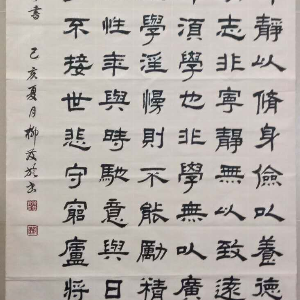 靜以脩身儉以養德
志非寧靜無以致遠
須學也非學無以廣
學淫慢則不能勵精
性年與時馳意與日
不接世悲守窮廬將
書
己亥夏月柳